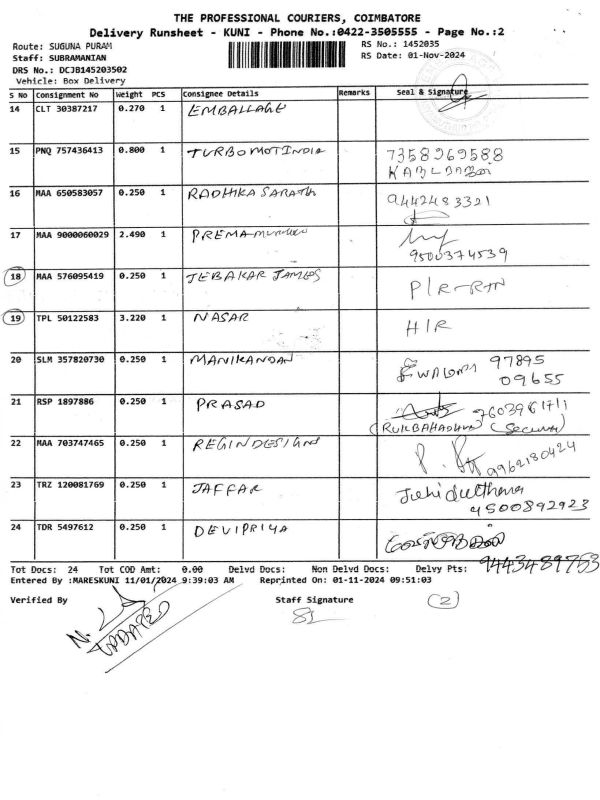 THE PROFESSIONAL COURIERS, COIMBATORE
Delivery Runsheet - KUNI - Phone No.:0422-3505555 - Page No.:2
Route: SUGUNA PURAM
RS No.: 1452035
Staff: SUBRAMANIAN
RS Date: 01-Nov-2024
DRS No.: DCJB145203502
Vehicle: Box Delivery
S No Consignment No Weight PCS Consignee Details Remarks Seal & Signature
14 CLT 30387217 0.270 1 EMBALLAGE
15 PNQ 757436413 0.800 1 TURBOMOTINDIA 7358969588
16 MAA 650583057 0.250 1 RADHIKA SARATH 9442483321
17 MAA 9000060029 2.490 1 PREMA
9500374539
18 MAA 576095419 0.250 1 JEBAKAR JAMES P/R-RTN
19 TPL 50122583 3.220 1 NASAR H/R
20 SLM 357820730 0.250 1 MANIKANDAN 97895
09655
21 RSP 1897886 0.250 1 PRASAD 7603961711
(RUKBAHADHUR (Security)
22 MAA 703747465 0.250 1 REGINDESIGNS 9962180424
23 TRZ 120081769 0.250 1 JAFFAR
4500892923
24 TDR 5497612 0.250 1 DEVIPRIYA
9443489753
Tot Docs: 24 Tot COD Amt: 0.00 Delvd Docs: Non Delvd Docs: Delvy Pts:
Entered By :MARESKUNI 11/01/2024 9:39:03 AM Reprinted On: 01-11-2024 09:51:03
Verified By Staff Signature (2)
N.
UPDATED